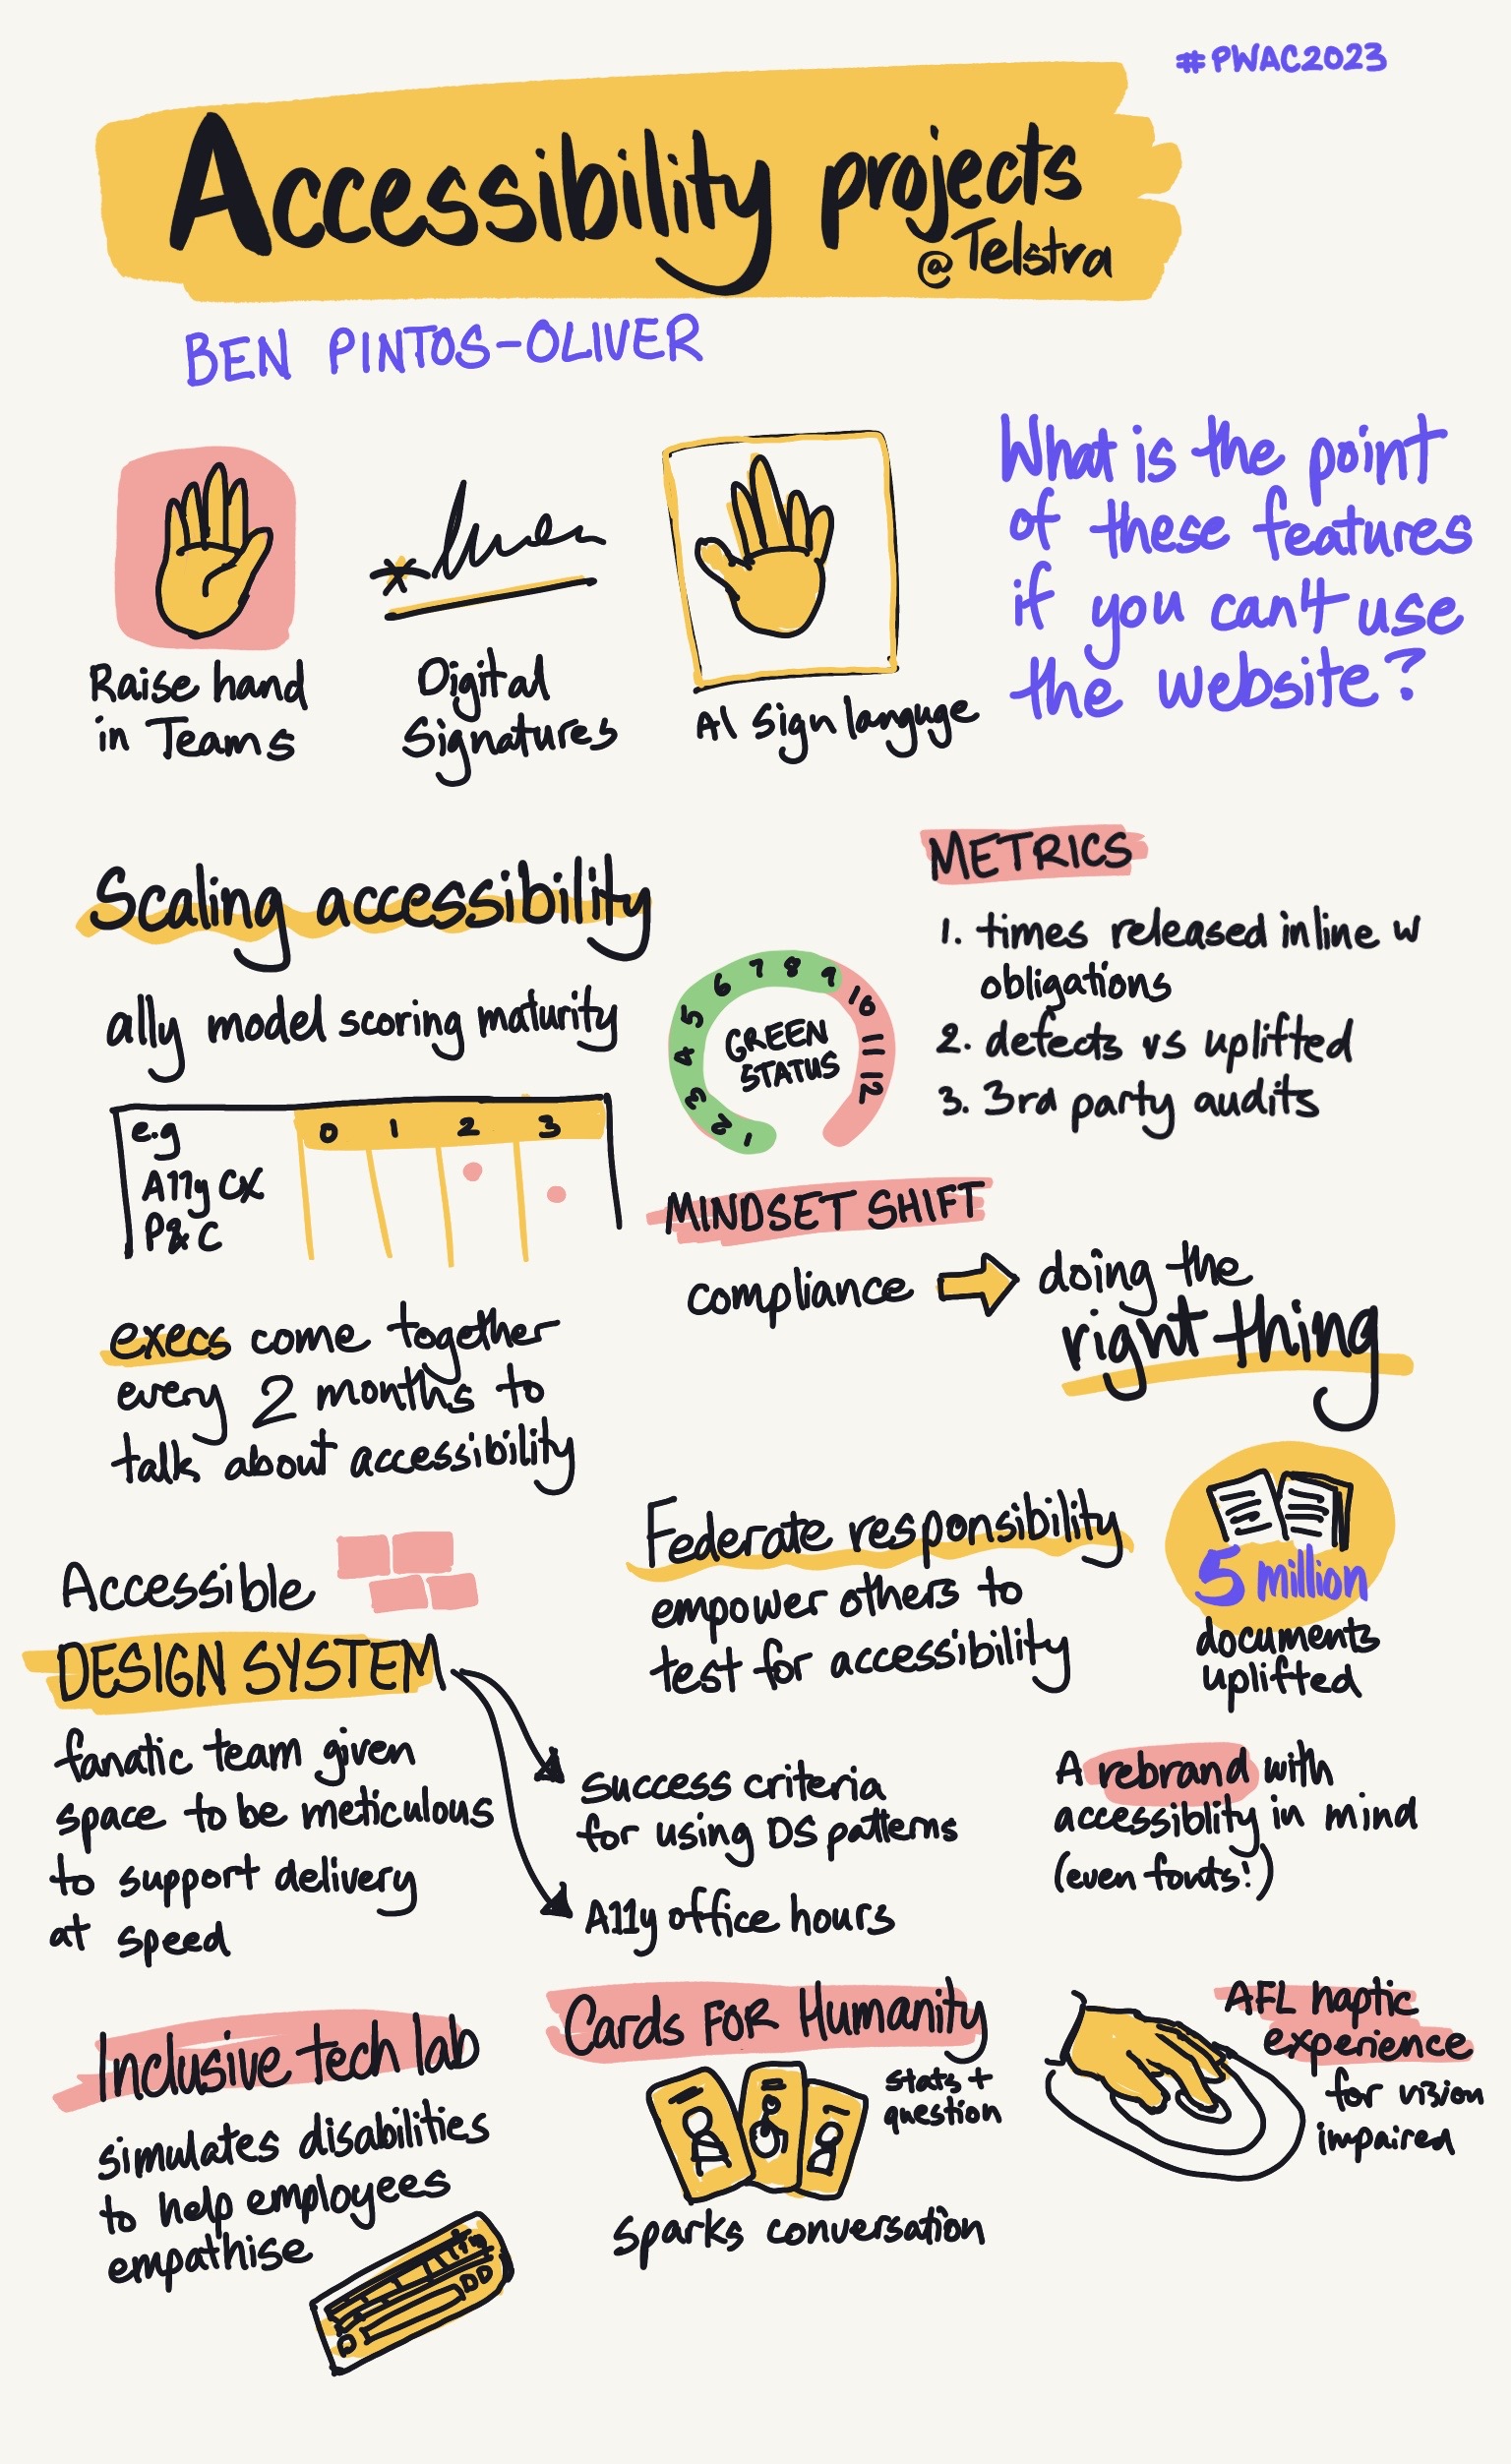 #PWAC2023
Accessibility projects
@Telstra
BEN PINTOS-OLIVER
Raise hand
in Teams
Digital
Signatures
AI Sign languge
What is the point
of these features
if you can't use
the website?
Scaling accessibility
a11y model scoring maturity
e.g 0 1 2 3
A11y CX
P&C
execs come together
every 2 months to
talk about accessibility
METRICS
1. times released inline w
obligations
2. defects vs uplifted
3. 3rd party audits
1 2 3 4 5 6 7 8 9 10 11 12
GREEN
STATUS
MINDSET SHIFT
compliance
doing the
right thing
Accessible
DESIGN SYSTEM
fanatic team given
space to be meticulous
to support delivery
at speed
Success criteria
for using DS patterns
A11y office hours
Federate responsibility
empower others to
test for accessibility
5 million
documents
uplifted
A rebrand with
accessiblity in mind
(even fonts!)
Inclusive tech lab
simulates disabilities
to help employees
empathise
Cards FOR Humanity
stats +
question
Sparks conversation
AFL haptic
experience
for vision
impaired